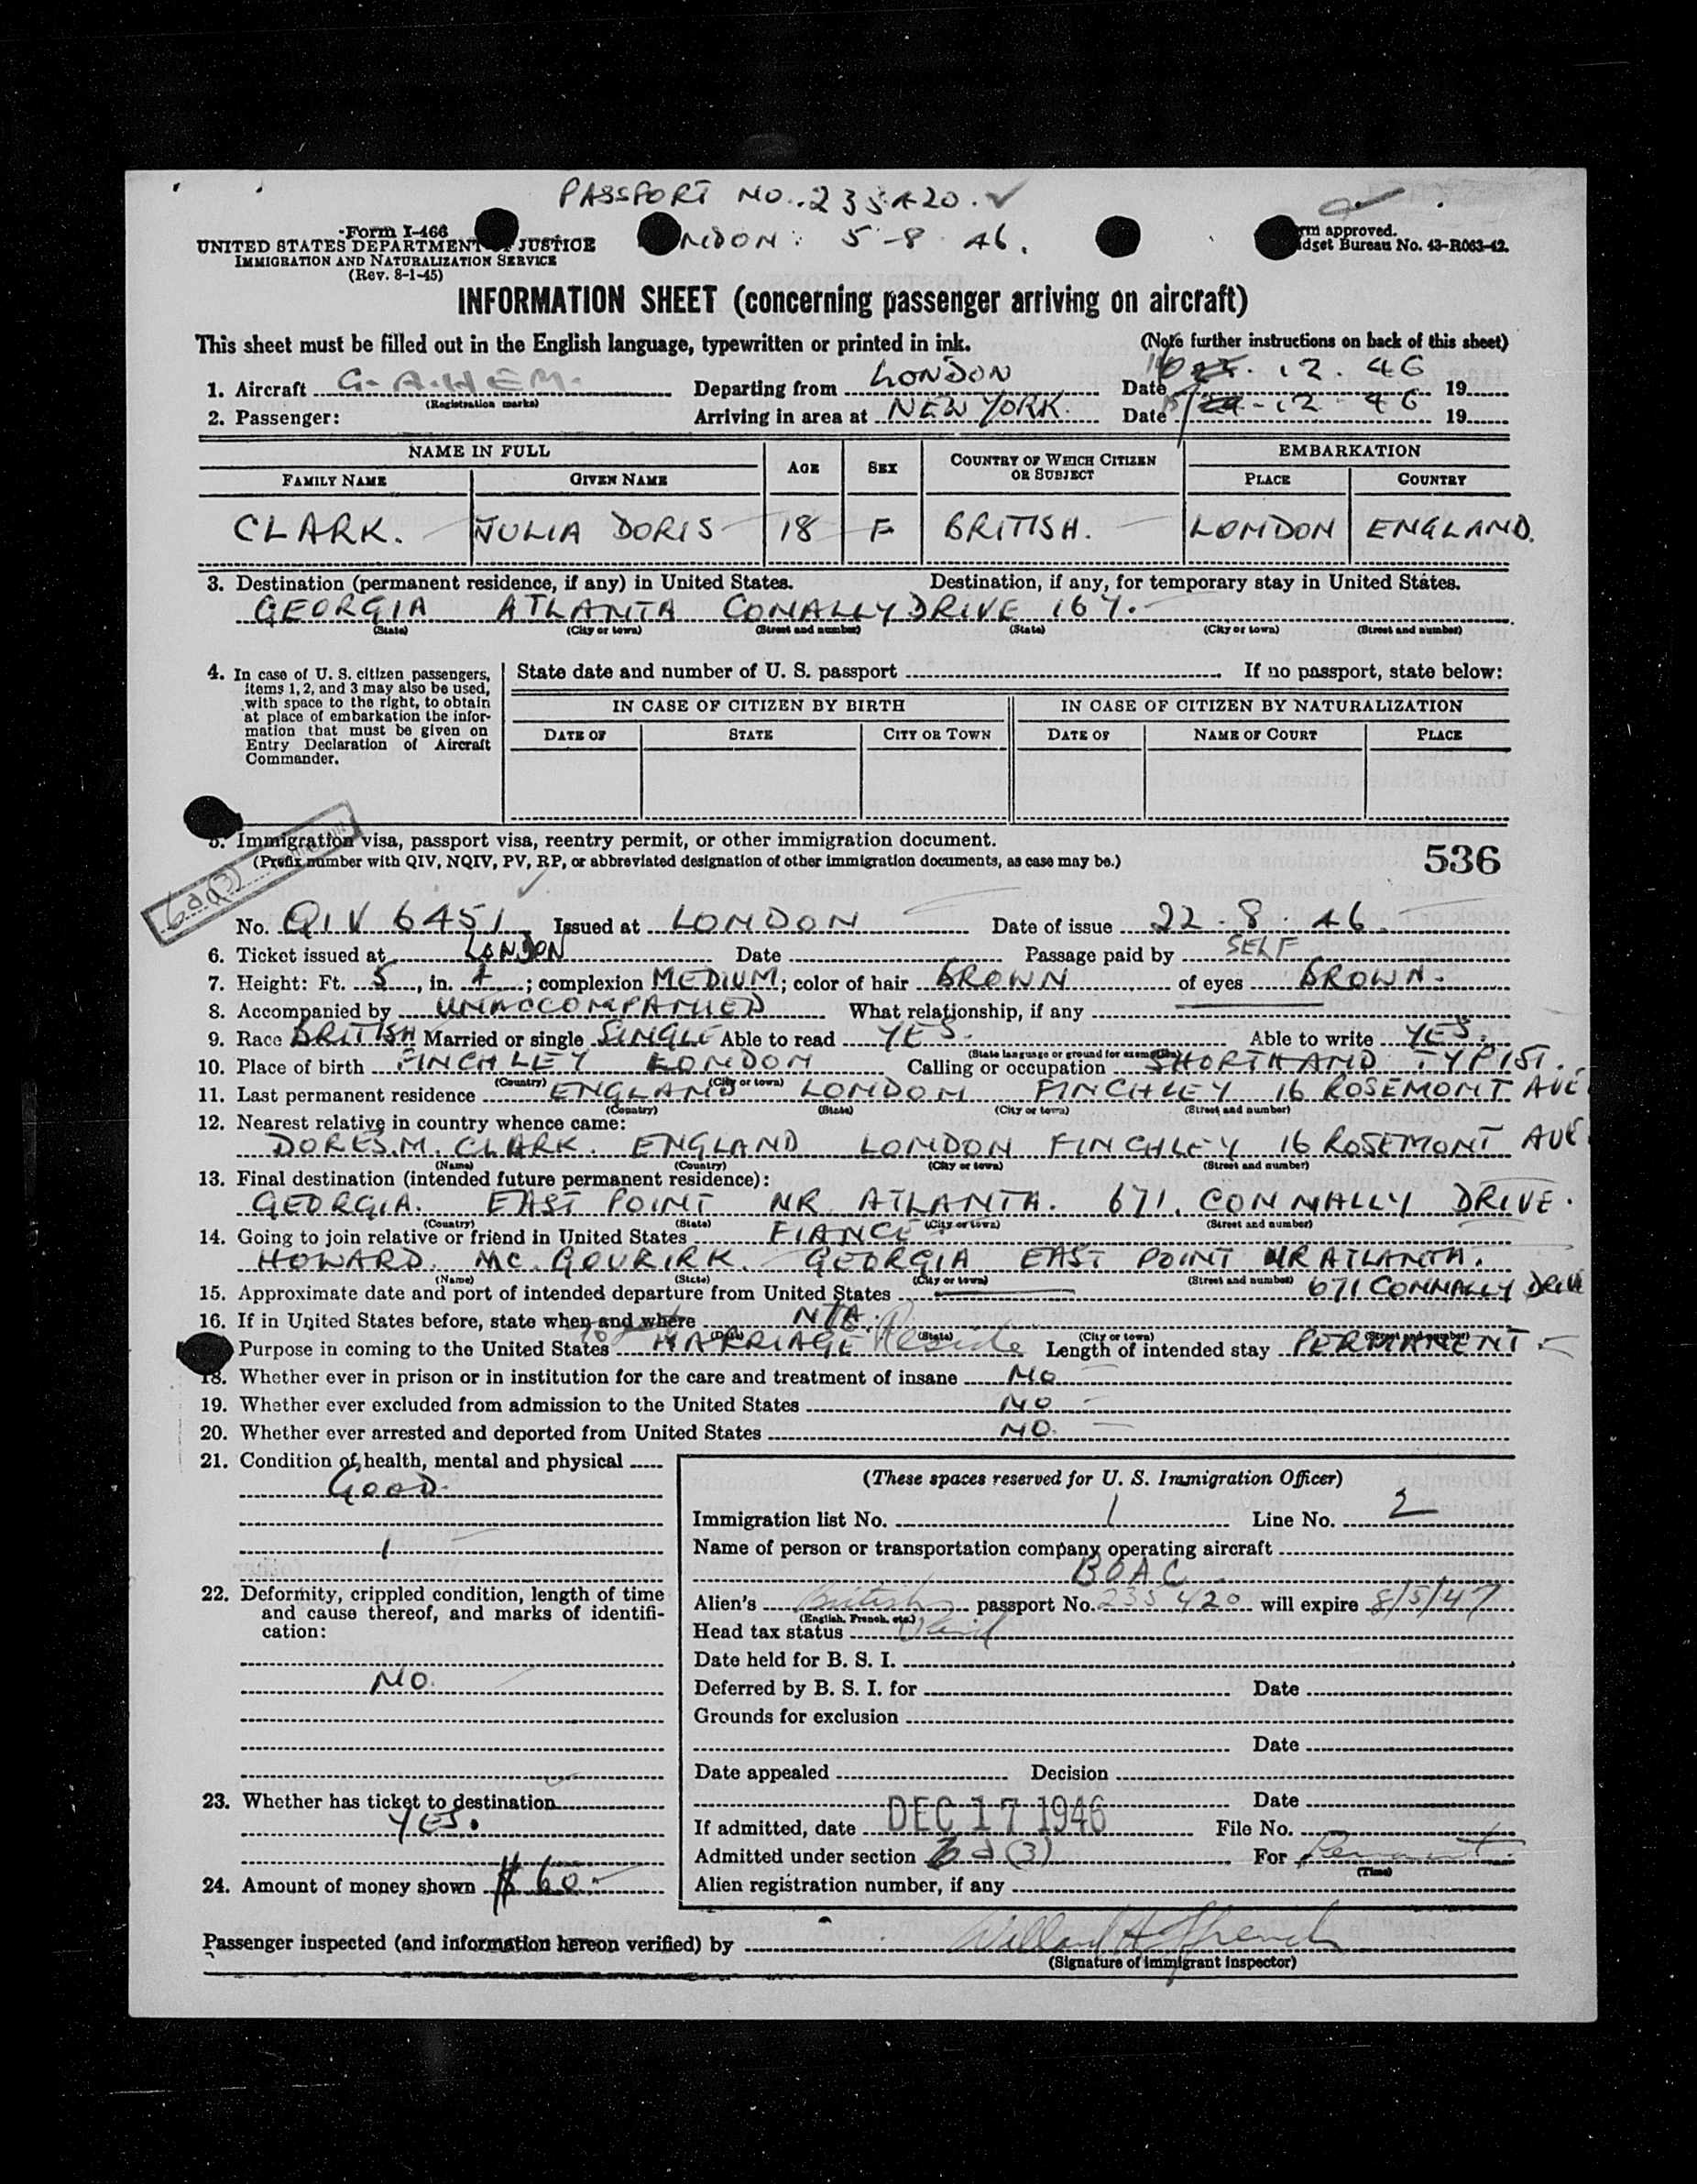 PASSPORT NO. 235420.
Form I-466
UNITED STATES DEPARTMENT JUSTICE
IMMIGRATION AND NATURALIZATION SERVICE
(Rev. 8-1-45)
5-8 46.
approved.
Bureau No. 43-R063-42.
INFORMATION SHEET (concerning passenger arriving on aircraft)
This sheet must be filled out in the English language, typewritten or printed in ink. (Note further instructions on back of this sheet)
1. Aircraft G-AHEM. Departing from LONDON Date 12. 46 19
(Registration marks)
2. Passenger: Arriving in area at NEW YORK. Date 12 46 19
NAME IN FULL AGE SEX COUNTRY OF WHICH CITIZEN OR SUBJECT EMBARKATION
FAMILY NAME GIVEN NAME PLACE COUNTRY
CLARK. JULIA DORIS 18 F BRITISH. LONDON ENGLAND.
3. Destination (permanent residence, if any) in United States. Destination, if any, for temporary stay in United States.
GEORGIA ATLANTA CONALLY DRIVE 167.
(State) (City or town) (Street and number) (State) (City or town) (Street and number)
4. In case of U. S. citizen passengers, items 1, 2, and 3 may also be used, with space to the right, to obtain at place of embarkation the information that must be given on Entry Declaration of Aircraft Commander.
State date and number of U. S. passport If no passport, state below:
IN CASE OF CITIZEN BY BIRTH IN CASE OF CITIZEN BY NATURALIZATION
DATE OF STATE CITY OR TOWN DATE OF NAME OF COURT PLACE
5. Immigration visa, passport visa, reentry permit, or other immigration document.
(Prefix number with QIV, NQIV, PV, RP, or abbreviated designation of other immigration documents, as case may be.)
536
6d(3)
No. QIV 6451 Issued at LONDON Date of issue 22 . 8 . 46.
6. Ticket issued at LONDON Date Passage paid by SELF
7. Height: Ft. 5, in. 4; complexion MEDIUM; color of hair BROWN of eyes BROWN.
8. Accompanied by UNACCOMPANIED What relationship, if any
9. Race BRITISH Married or single SINGLE Able to read YES. Able to write YES.
(State language or ground for exemption)
10. Place of birth FINCHLEY LONDON Calling or occupation SHORTHAND TYPIST.
(Country) (City or town)
11. Last permanent residence ENGLAND LONDON FINCHLEY 16 ROSEMONT AVE
(Country) (State) (City or town) (Street and number)
12. Nearest relative in country whence came:
DORES.M. CLARK. ENGLAND LONDON FINCHLEY 16 ROSEMONT AVE.
(Name) (Country) (City or town) (Street and number)
13. Final destination (intended future permanent residence):
GEORGIA. EAST POINT NR ATLANTA. 671. CONNALLY DRIVE.
(Country) (State) (City or town) (Street and number)
14. Going to join relative or friend in United States FIANCE
HOWARD. MC. GOURIRK. GEORGIA EAST POINT NR ATLANTA.
(Name) (State) (City or town) (Street and number)
15. Approximate date and port of intended departure from United States 671 CONNALLY DRIVE
16. If in United States before, state when and where N/A.
(Date) (State) (City or town) (Street and number)
Purpose in coming to the United States MARRIAGE Reside Length of intended stay PERMANENT.
18. Whether ever in prison or in institution for the care and treatment of insane NO
19. Whether ever excluded from admission to the United States NO
20. Whether ever arrested and deported from United States NO.
21. Condition of health, mental and physical
GOOD.
22. Deformity, crippled condition, length of time and cause thereof, and marks of identification:
NO.
23. Whether has ticket to destination
YES.
24. Amount of money shown $ 60
(These spaces reserved for U. S. Immigration Officer)
Immigration list No. 1 Line No. 2
Name of person or transportation company operating aircraft
BOAC
Alien's British passport No. 235420 will expire 8/5/47
(English, French, etc.)
Head tax status Paid
Date held for B. S. I.
Deferred by B. S. I. for Date
Grounds for exclusion
Date
Date appealed Decision
Date
If admitted, date DEC 17 1946 File No.
Admitted under section 6d(3) For Permanent
(Time)
Alien registration number, if any
Passenger inspected (and information hereon verified) by
(Signature of immigrant inspector)